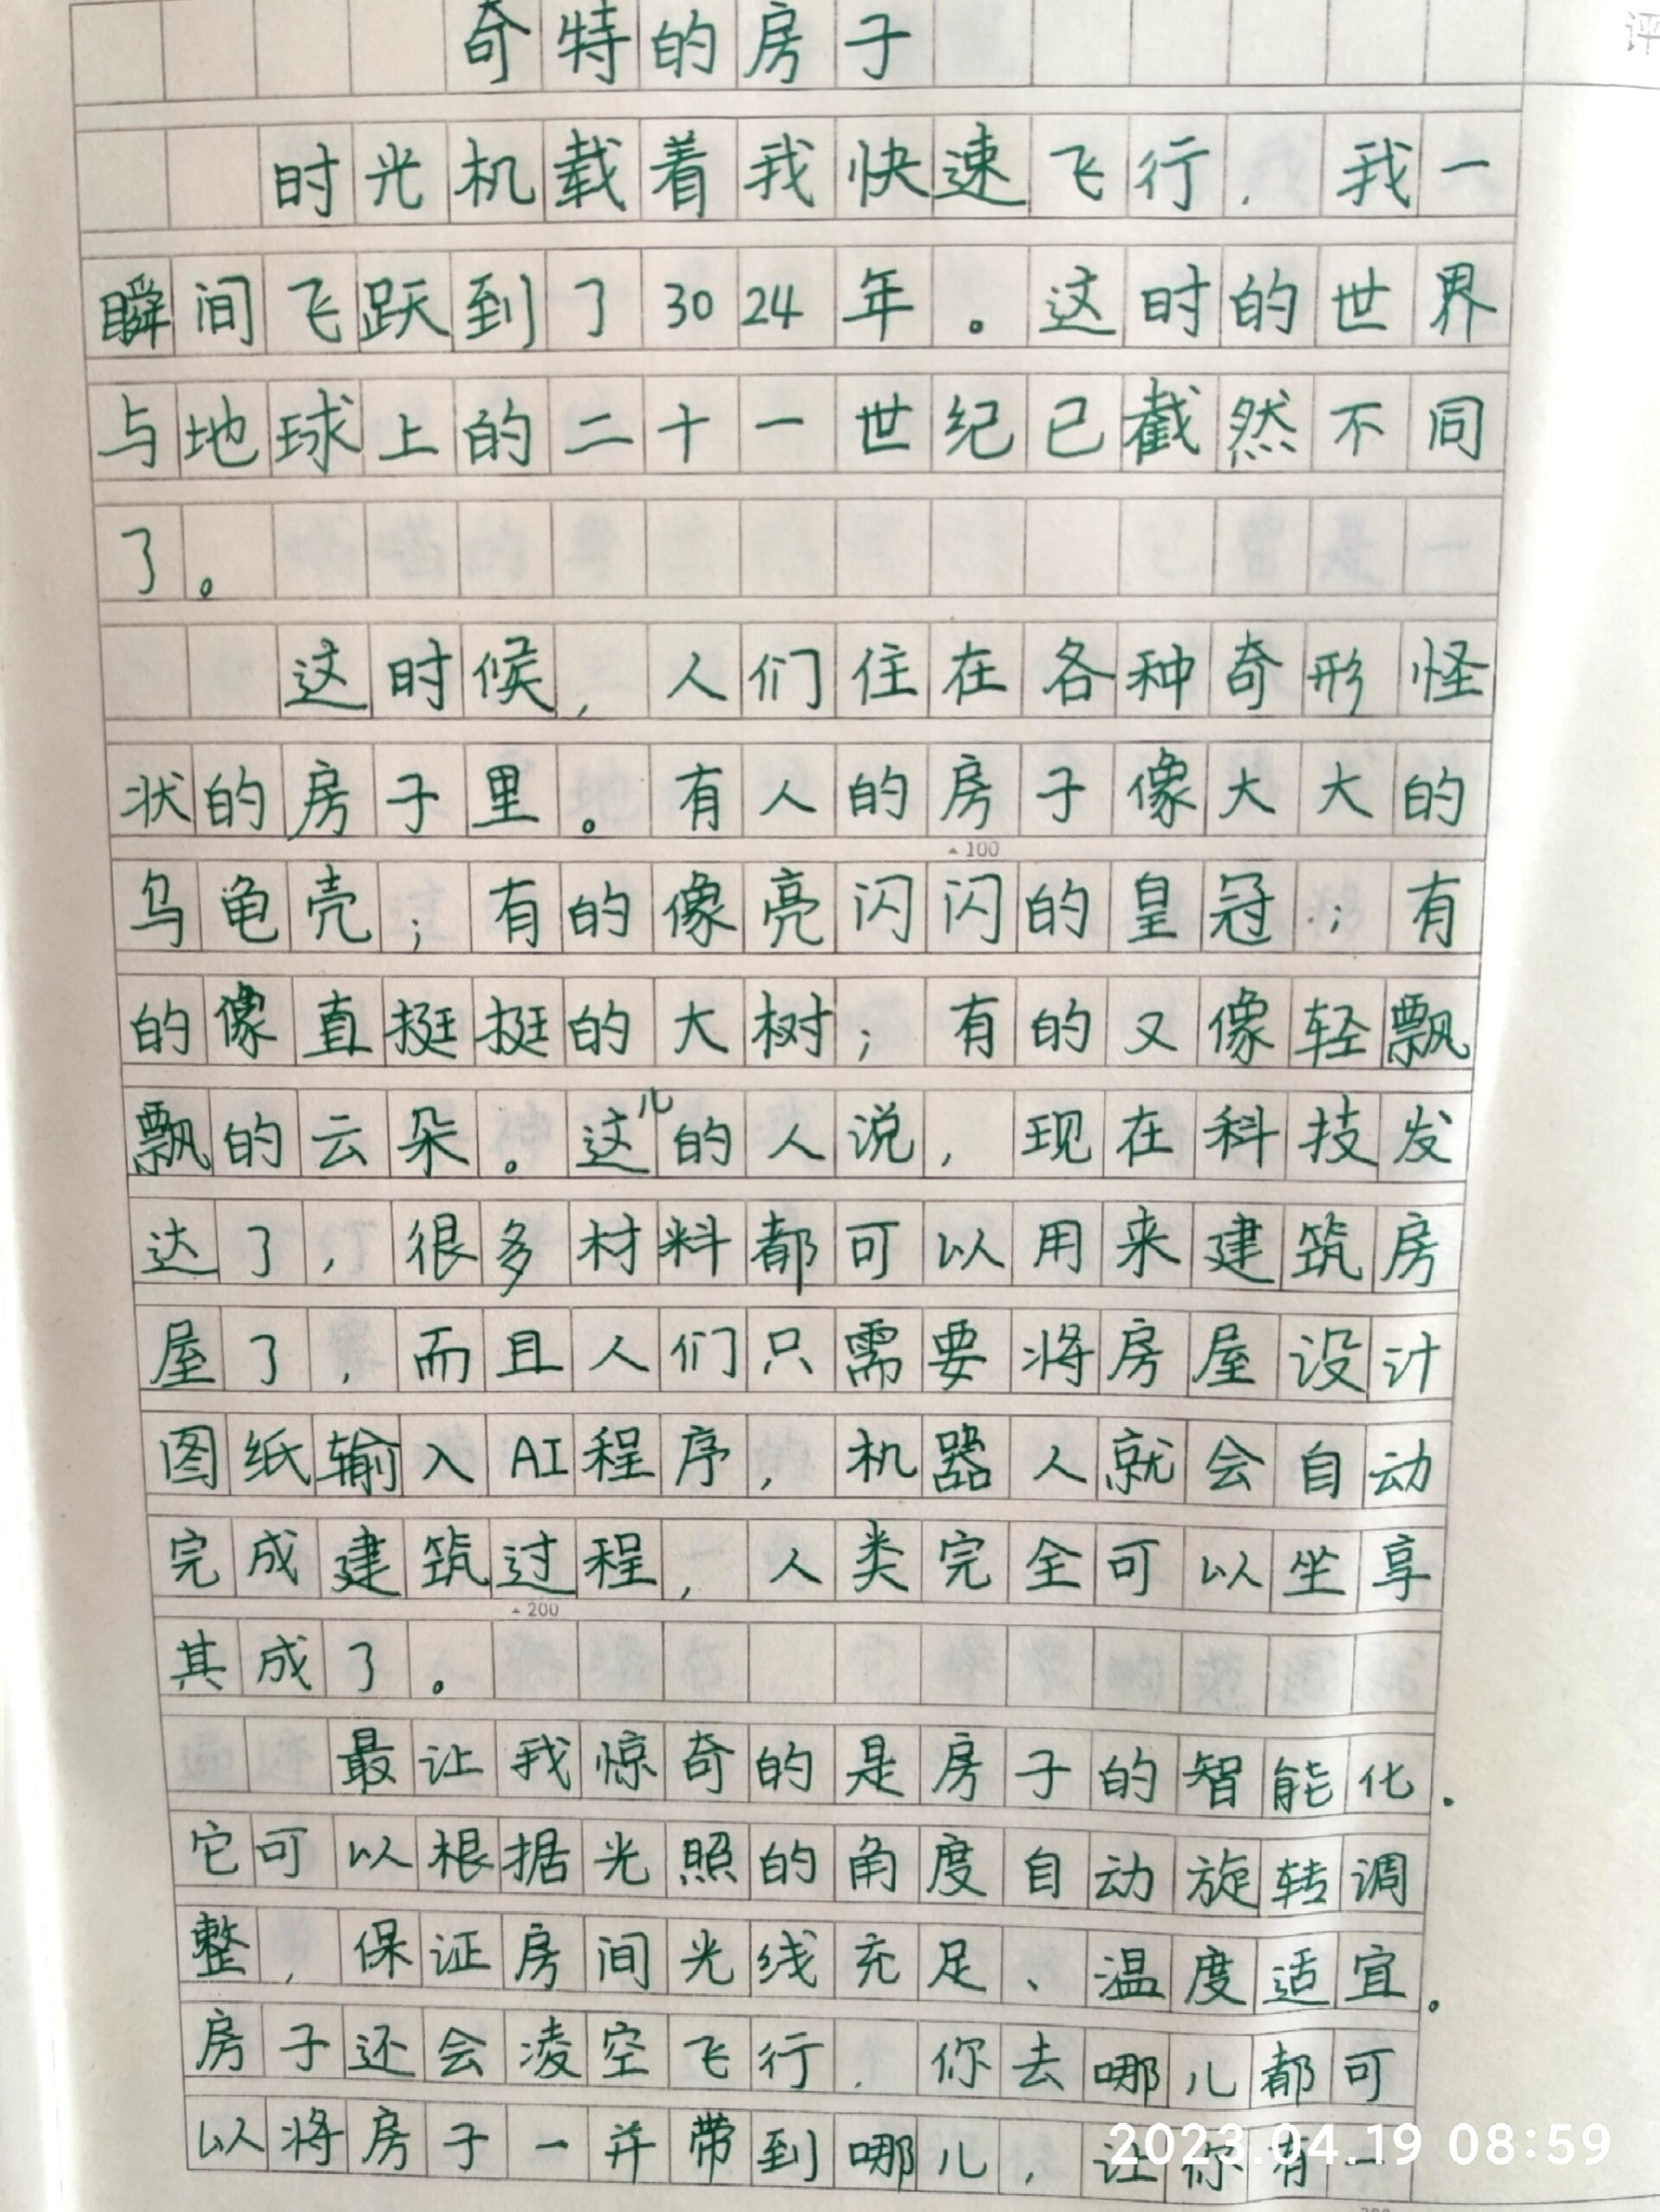 奇特的房子
评
时光机载着我快速飞行，我一
瞬间飞跃到了3024年。这时的世界
与地球上的二十一世纪已截然不同
了。
这时候，人们住在各种奇形怪
状的房子里。有人的房子像大大的
▲100
乌龟壳；有的像亮闪闪的皇冠；有
的像直挺挺的大树；有的又像轻飘
飘的云朵。这儿的人说，现在科技发
达了，很多材料都可以用来建筑房
屋了，而且人们只需要将房屋设计
图纸输入AI程序，机器人就会自动
完成建筑过程，人类完全可以坐享
▲200
其成了。
最让我惊奇的是房子的智能化。
它可以根据光照的角度自动旋转调
整，保证房间光线充足、温度适宜。
房子还会凌空飞行，你去哪儿都可
以将房子一并带到哪儿，让你有一
2023.04.19 08:59